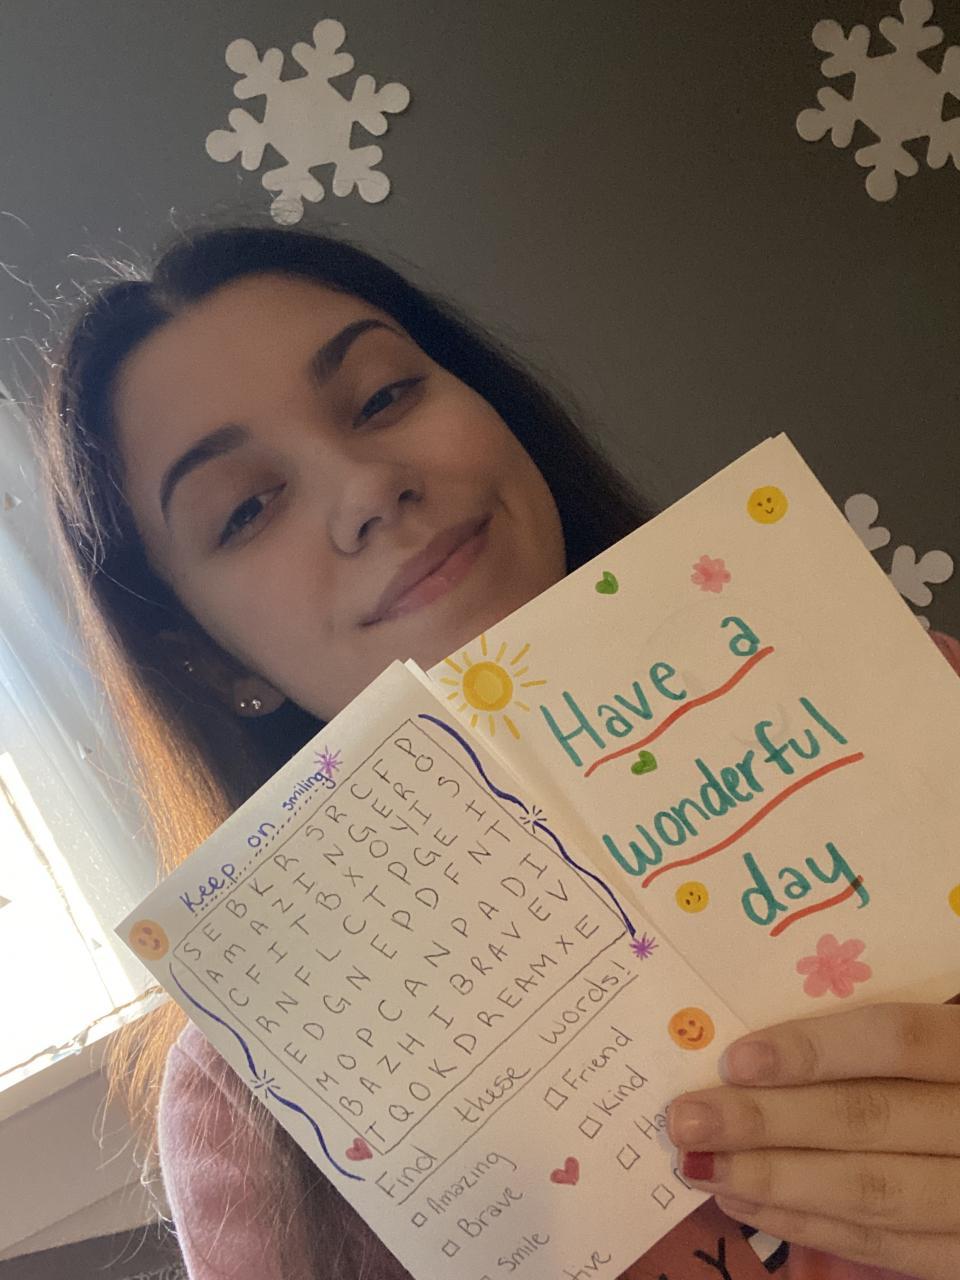 Keep on smiling
S E B K R S R C F P
A M A Z I N G E R O
C F I T B X O V I S
R N F L C T P G E I
E D G N E P D F N T
M O P C A N P A D I
B A Z H I B R A V E V
T Q O K D R E A M X E
Find these words!
Amazing
Brave
Smile
Friend
Kind
Have a
wonderful
day